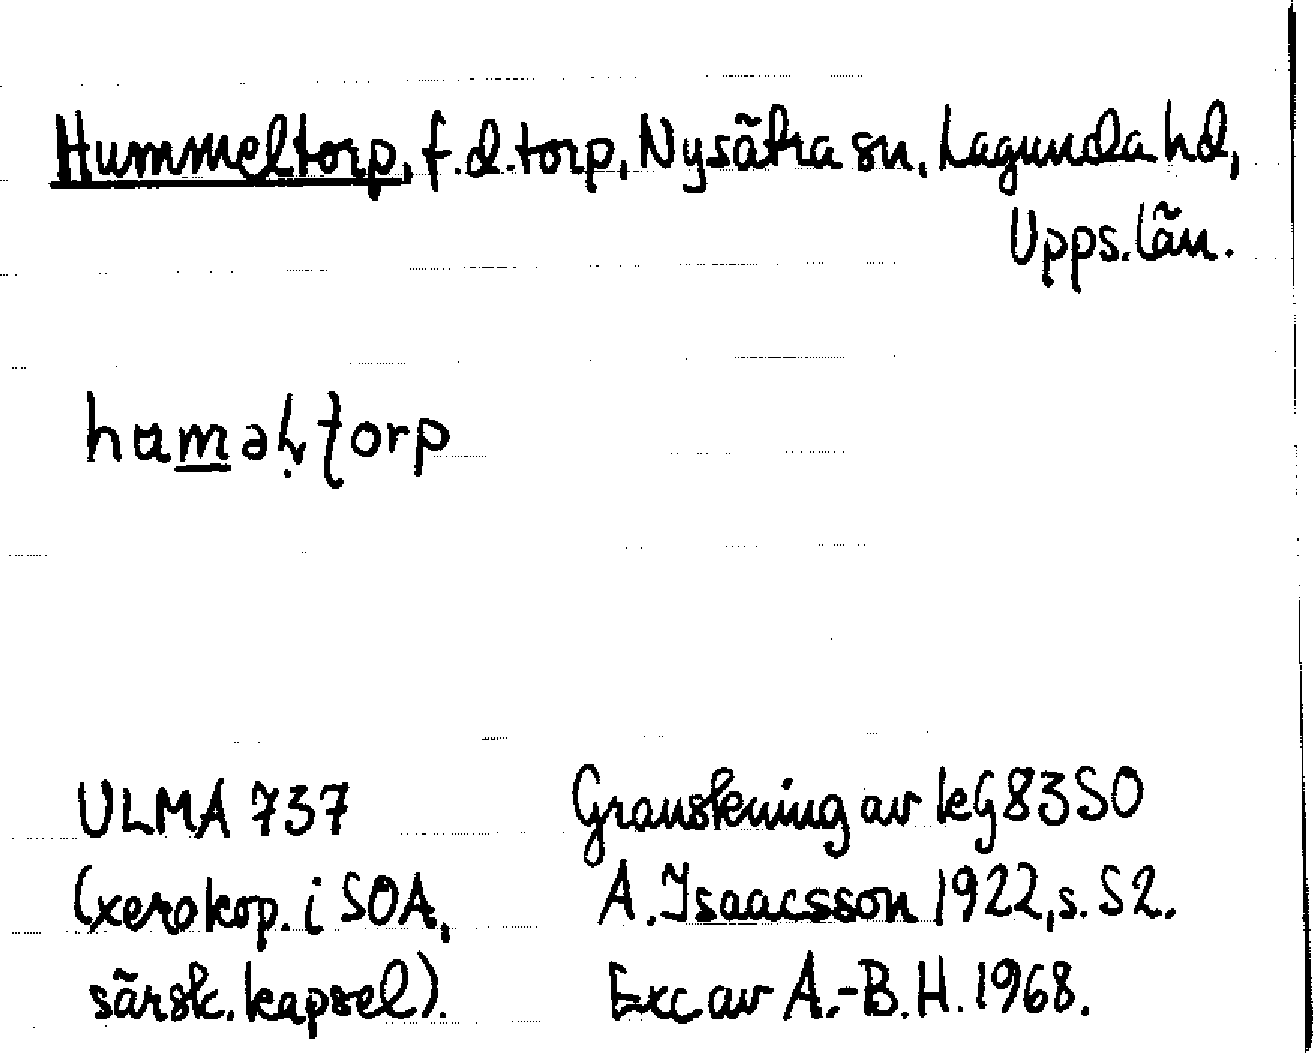 Hummeltorp, f.d. torp, Nysätra sn, Lagunda hd,
Upps. län.
ULMA 737
Granskning av kG 83 SO
(xerokop. i SOA,
A. Isaacsson 1922, s. 52.
särsk. kapsel).
Exc av A.-B. H. 1968.